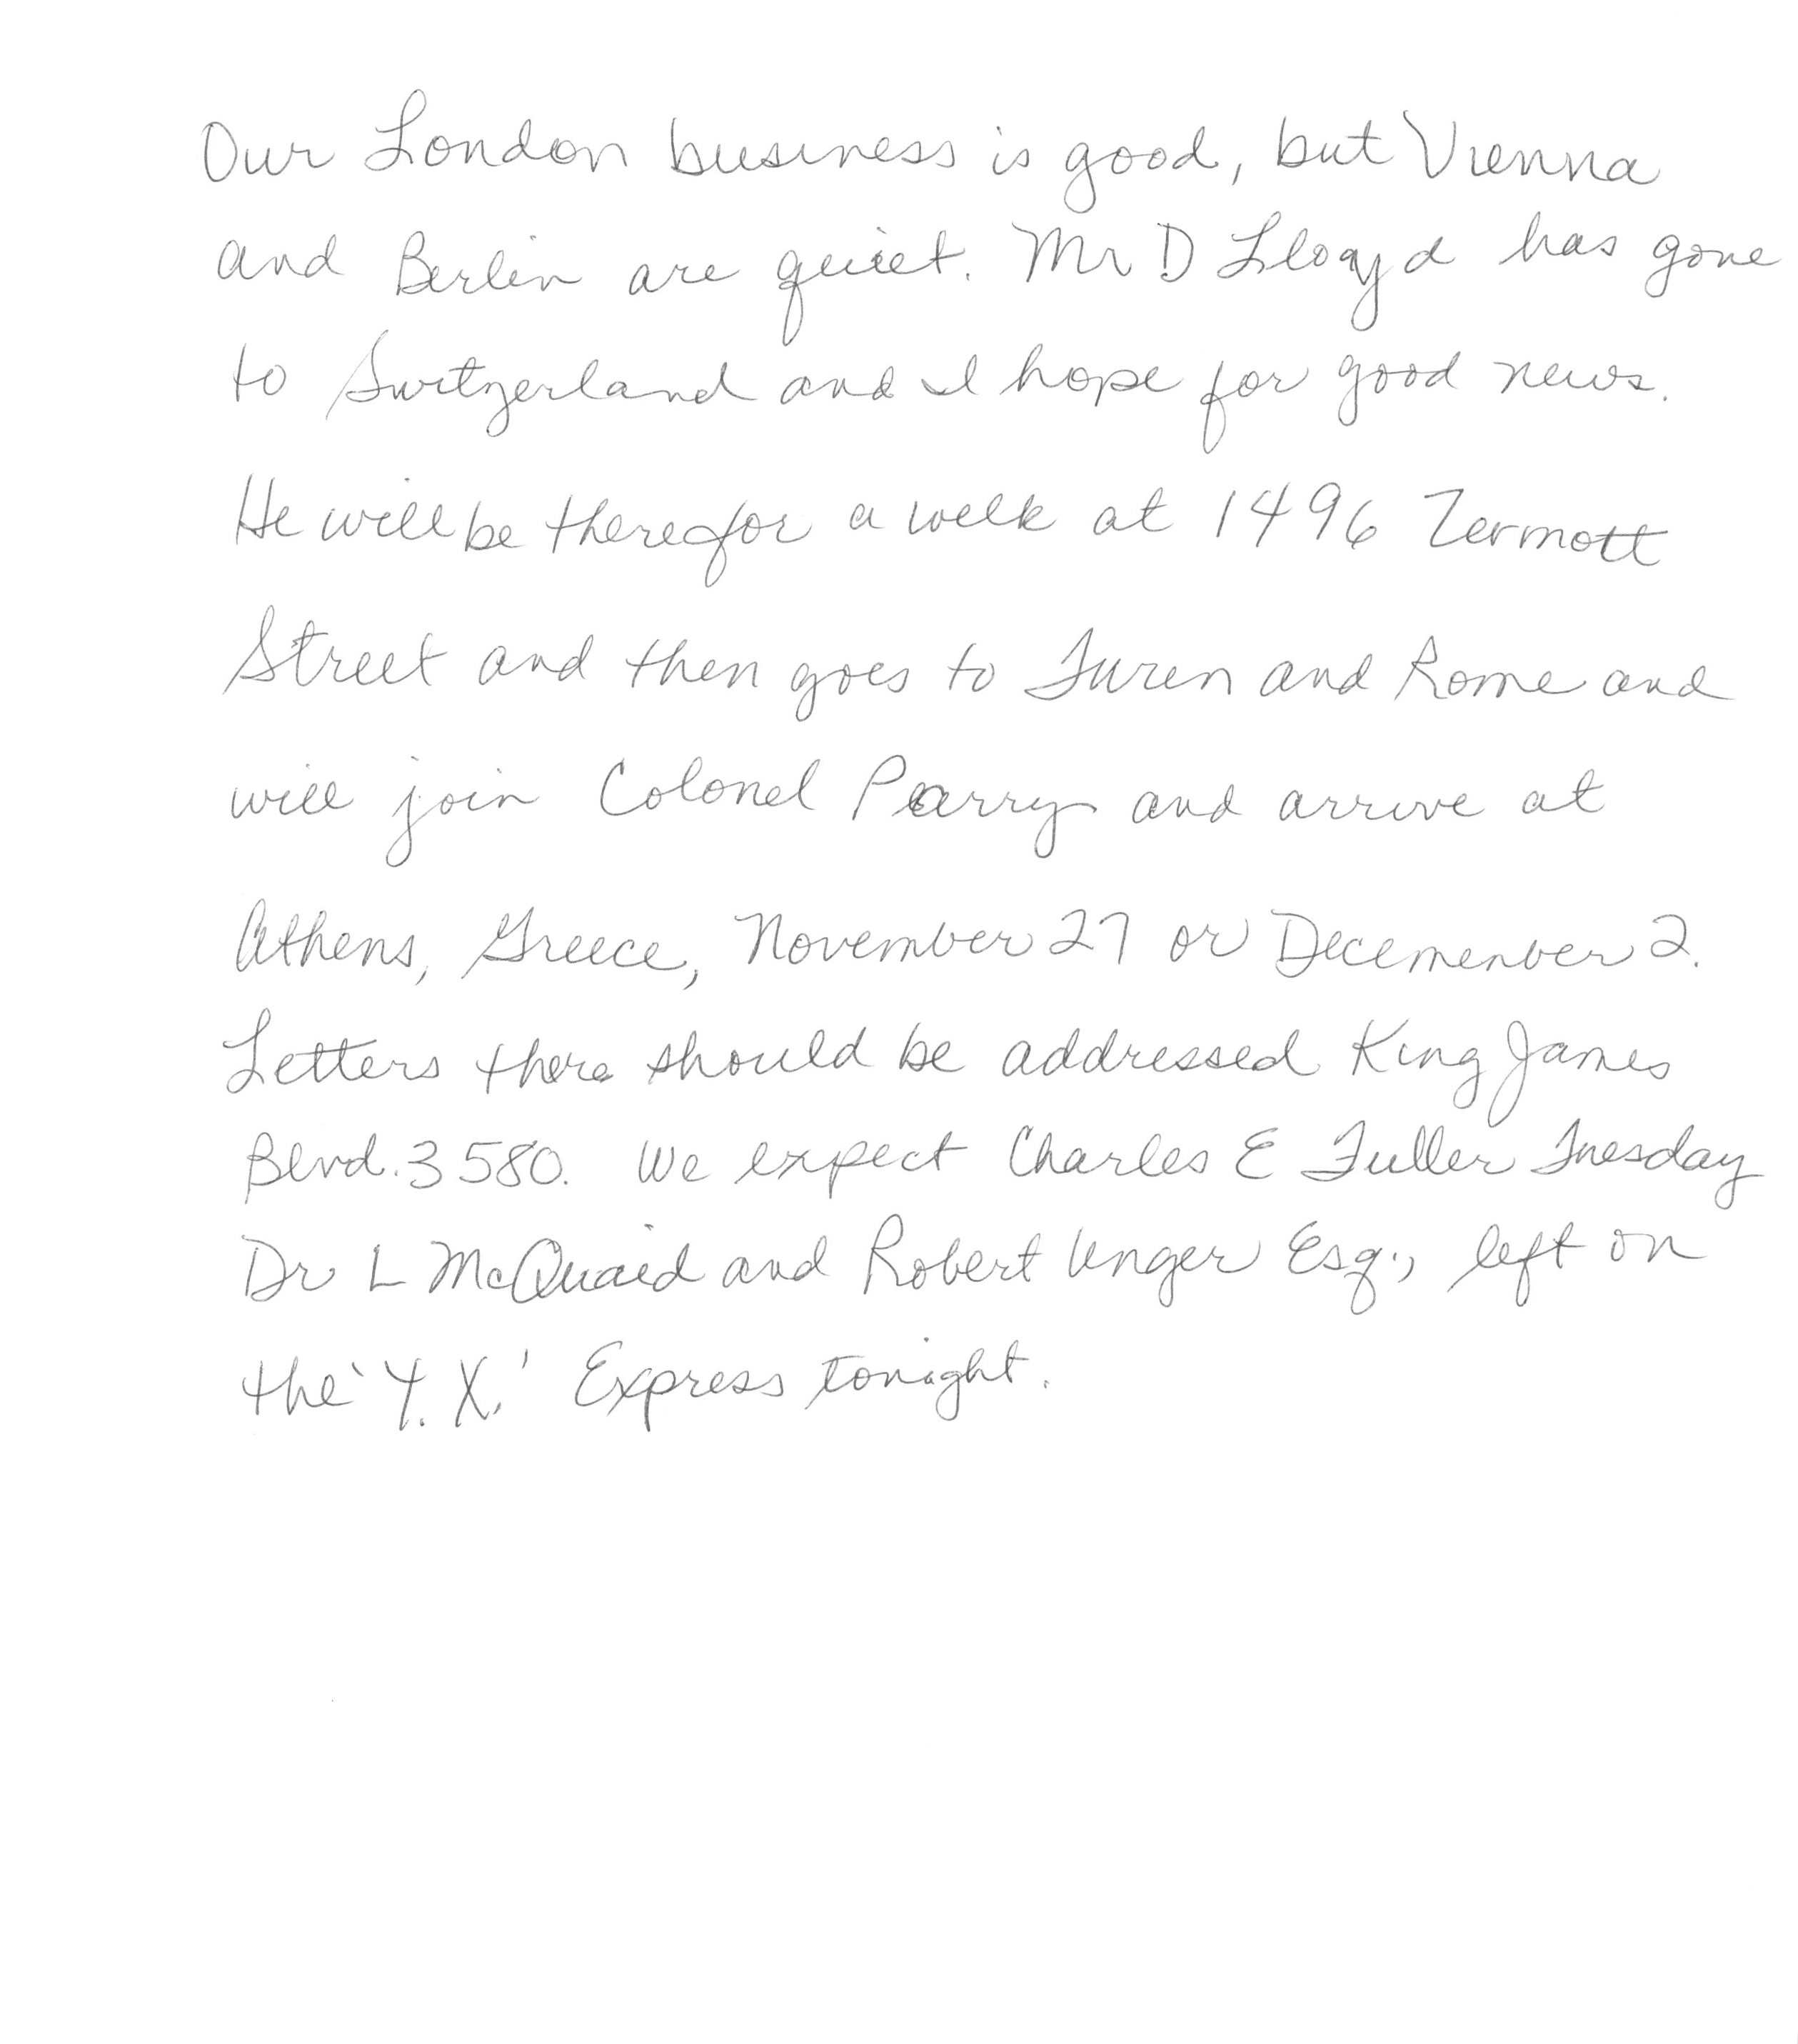 Our London business is good, but Vienna
and Berlin are quiet. Mr D Lloyd has gone
to Switzerland and I hope for good news.
He will be there for a week at 1496 Zermott
Street and then goes to Turin and Rome and
will join Colonel Parry and arrive at
Athens, Greece, November 27 or Decemenber 2.
Letters there should be addressed King James
Blvd. 3580. We expect Charles E Fuller Tuesday
Dr L McQuaid and Robert Unger Esq., left on
the 'Y. X.' Express tonight.